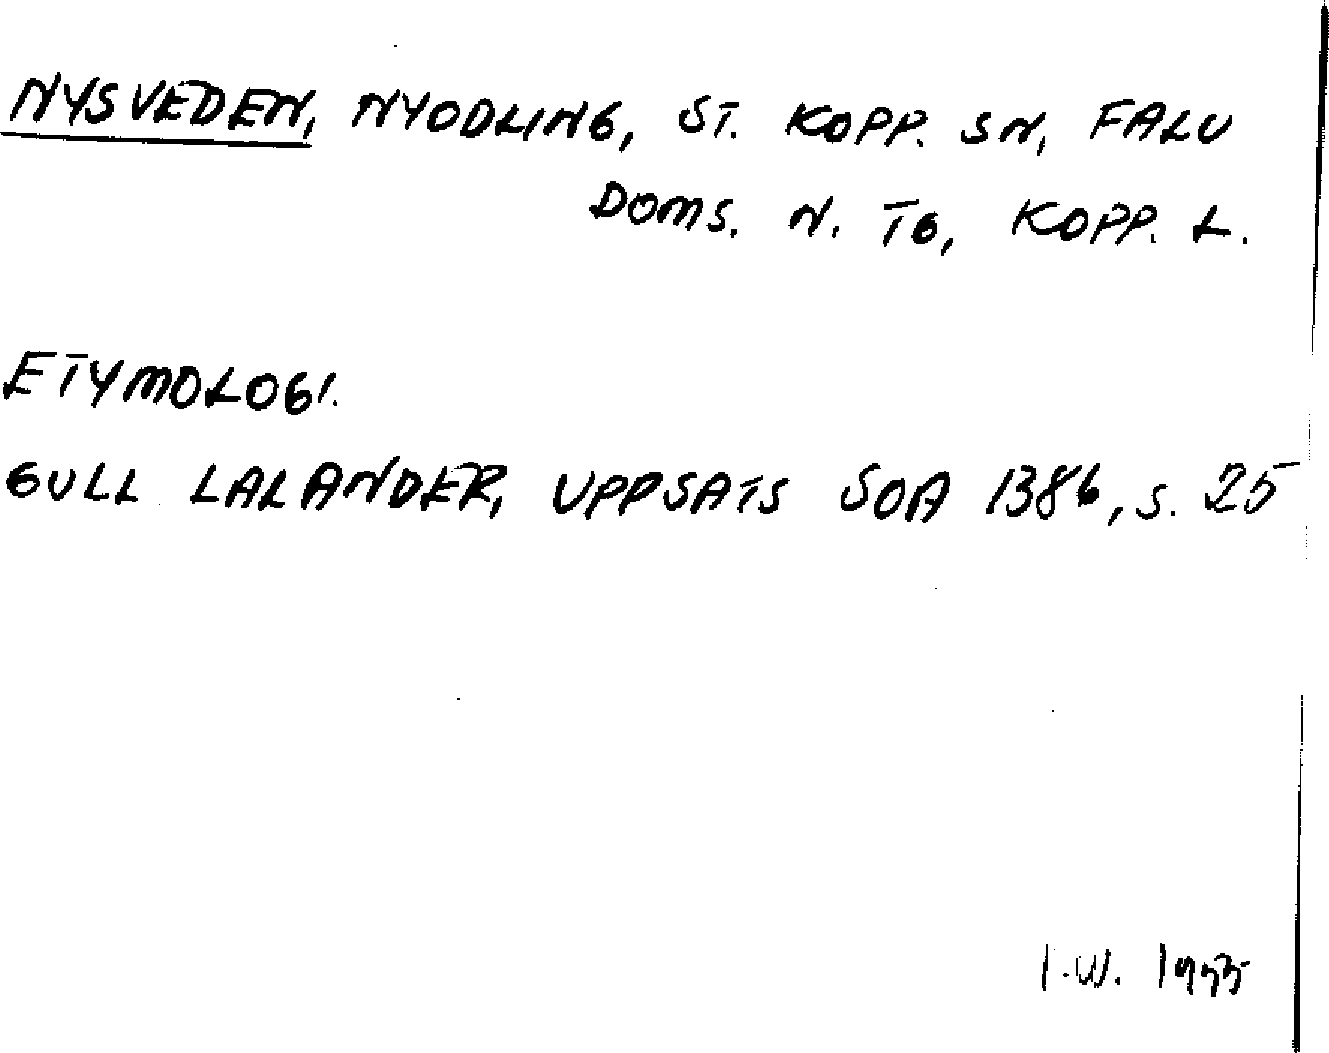 NYSVEDEN, NYODLING, ST. KOPP. SN, FALU
DOMS. N. TG, KOPP. L.
ETYMOLOGI.
GULL LALANDER, UPPSATS SOA 1386, S. 25
I.W. 1955